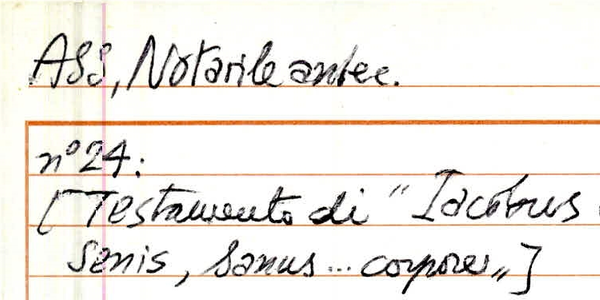 ASS, Notarile antec.
n° 24:
[Testamento di "Iacobus
Senis, sanus... corpore"]